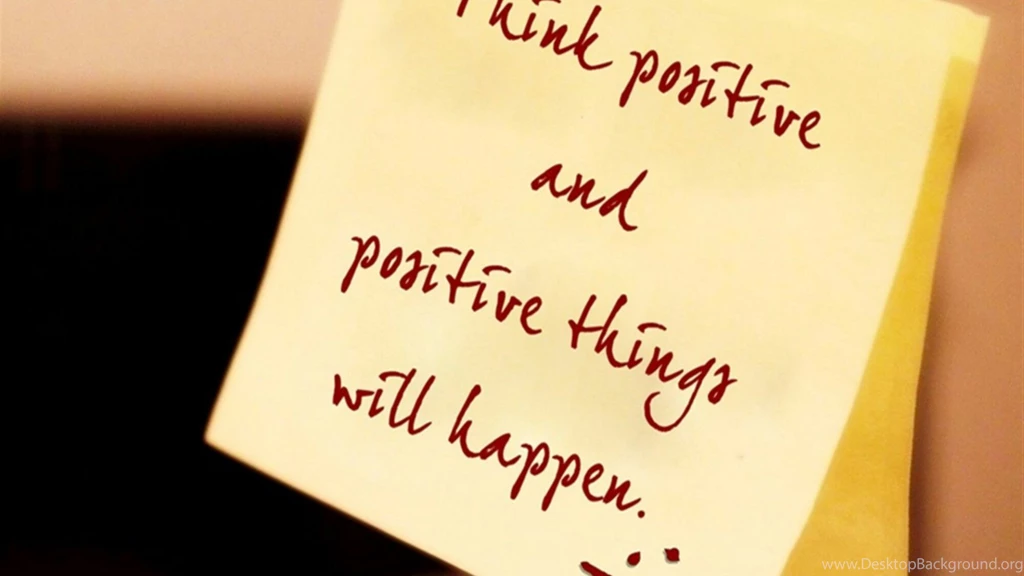 Think positive
and
positive things
will happen.
www.DesktopBackground.org